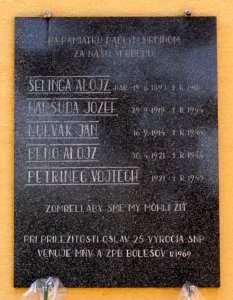 NA PAMIATKU PADLÝM HRDINOM
ZA NAŠU SLOBODU
SELINGA ALOJZ NAR. 19.6.1893 † R.19
LABSUDA JOZEF 29.9.1919 † R.1944
JÁN 16.9.1914 † R.1944
BENO ALOJZ 30.4.1921 † R.1945
PETRINEC VOJTECH 1921 † R.1945
ZOMRELI ABY SME MY MOHLI ŽIŤ
PRI PRÍLEŽITOSTI OSLÁV 25 VÝROČIA SNP
VENUJE MNV A ZPB BOLEŠOV R.1969